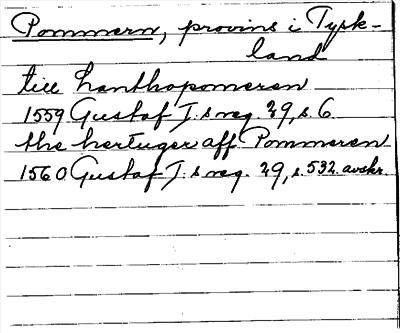 Pommern, provins i Tysk-
land
till hanthopomeren
1559 Gustaf I.s reg. 29, s. 6.
the hertuger aff Pommeren
1560 Gustaf I.s reg. 29, s. 532. avskr.